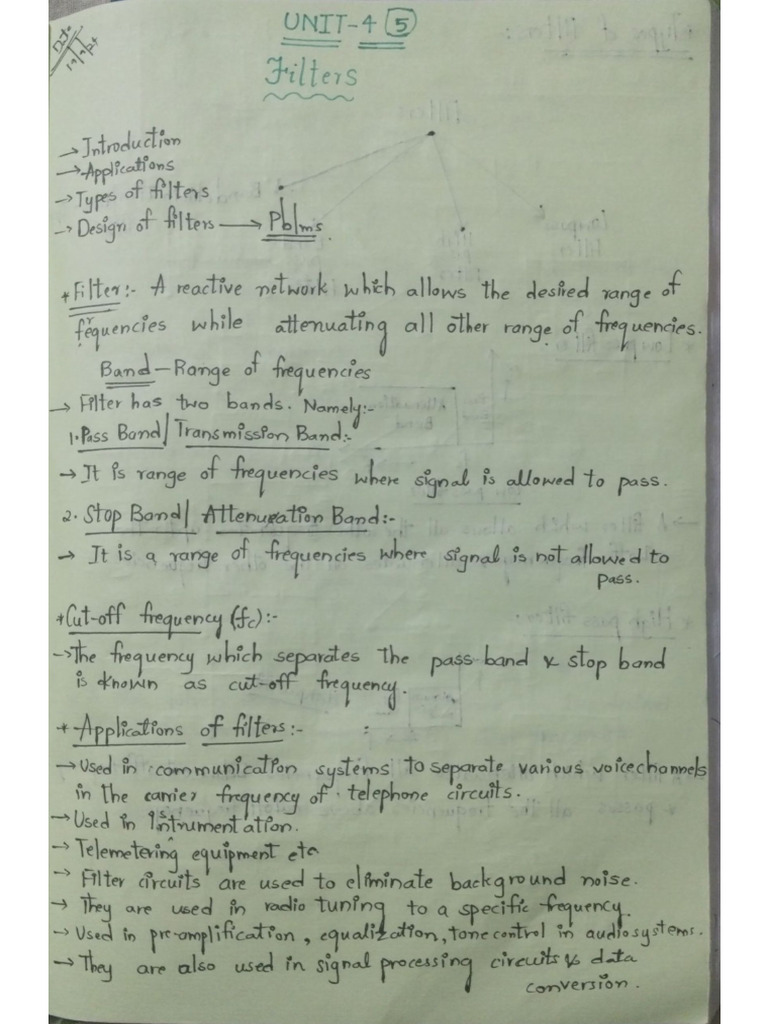 UNIT-4 5
Filters
→ Introduction
→ Applications
→ Types of filters
→ Design of filters → Pblms.
* Filter:- A reactive network which allows the desired range of
frequencies while attenuating all other range of frequencies.
Band - Range of frequencies
→ Filter has two bands. Namely:-
1. Pass Band / Transmission Band:-
→ It is range of frequencies where signal is allowed to pass.
2. Stop Band / Attenuation Band:-
→ It is a range of frequencies where signal is not allowed to
pass.
* Cut-off frequency (fc):-
→ The frequency which separates the pass band & stop band
is known as cut-off frequency.
* Applications of filters:-
→ Used in communication systems to separate various voice channels
in the carrier frequency of telephone circuits.
→ Used in Instrumentation.
→ Telemetering equipment etc
→ Filter circuits are used to eliminate background noise.
→ They are used in radio tuning to a specific frequency.
→ Used in pre-amplification, equalization, tone control in audio systems.
→ They are also used in signal processing circuits & data
conversion.